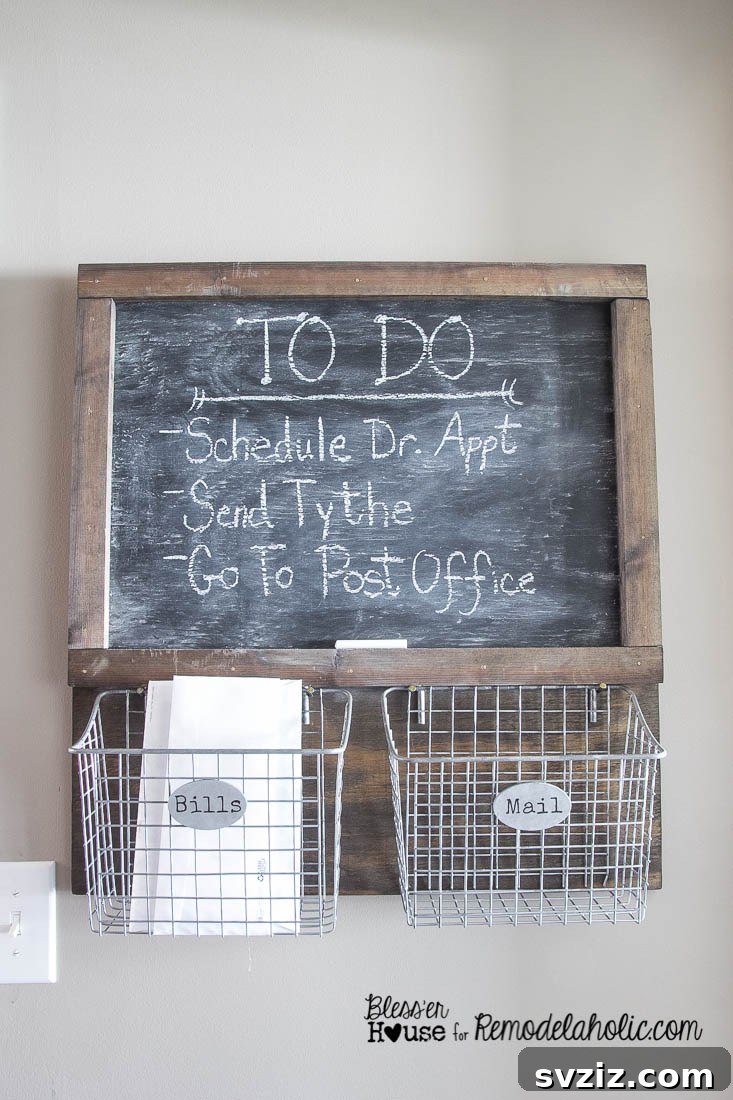 TO DO
-Schedule Dr. Appt
-Send Tythe
-Go To Post Office
Bills
Mail
Bless'er House for Remodelaholic.com
svziz.com